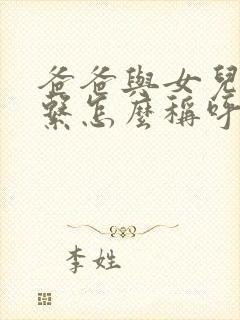 爸爸與女兒
繫怎麼稱呼
李姓